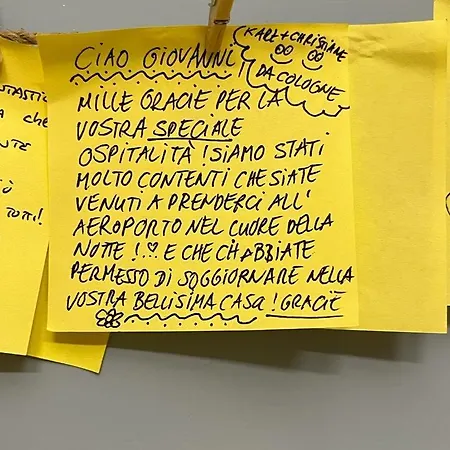 CIAO GIOVANNI
KARL + CHRISTIANE
DA COLOGNE
MILLE GRACIE PER LA
VOSTRA SPECIALE
OSPITALITÀ ! SIAMO STATI
MOLTO CONTENTI CHE SIATE
VENUTI A PRENDERCI ALL'
AEROPORTO NEL CUORE DELLA
NOTTE ! E CHE CI ABBIATE
PERMESSO DI SOGGIORNARE NELLA
VOSTRA BELLISIMA CASA ! GRACIE
che
TUTTI!